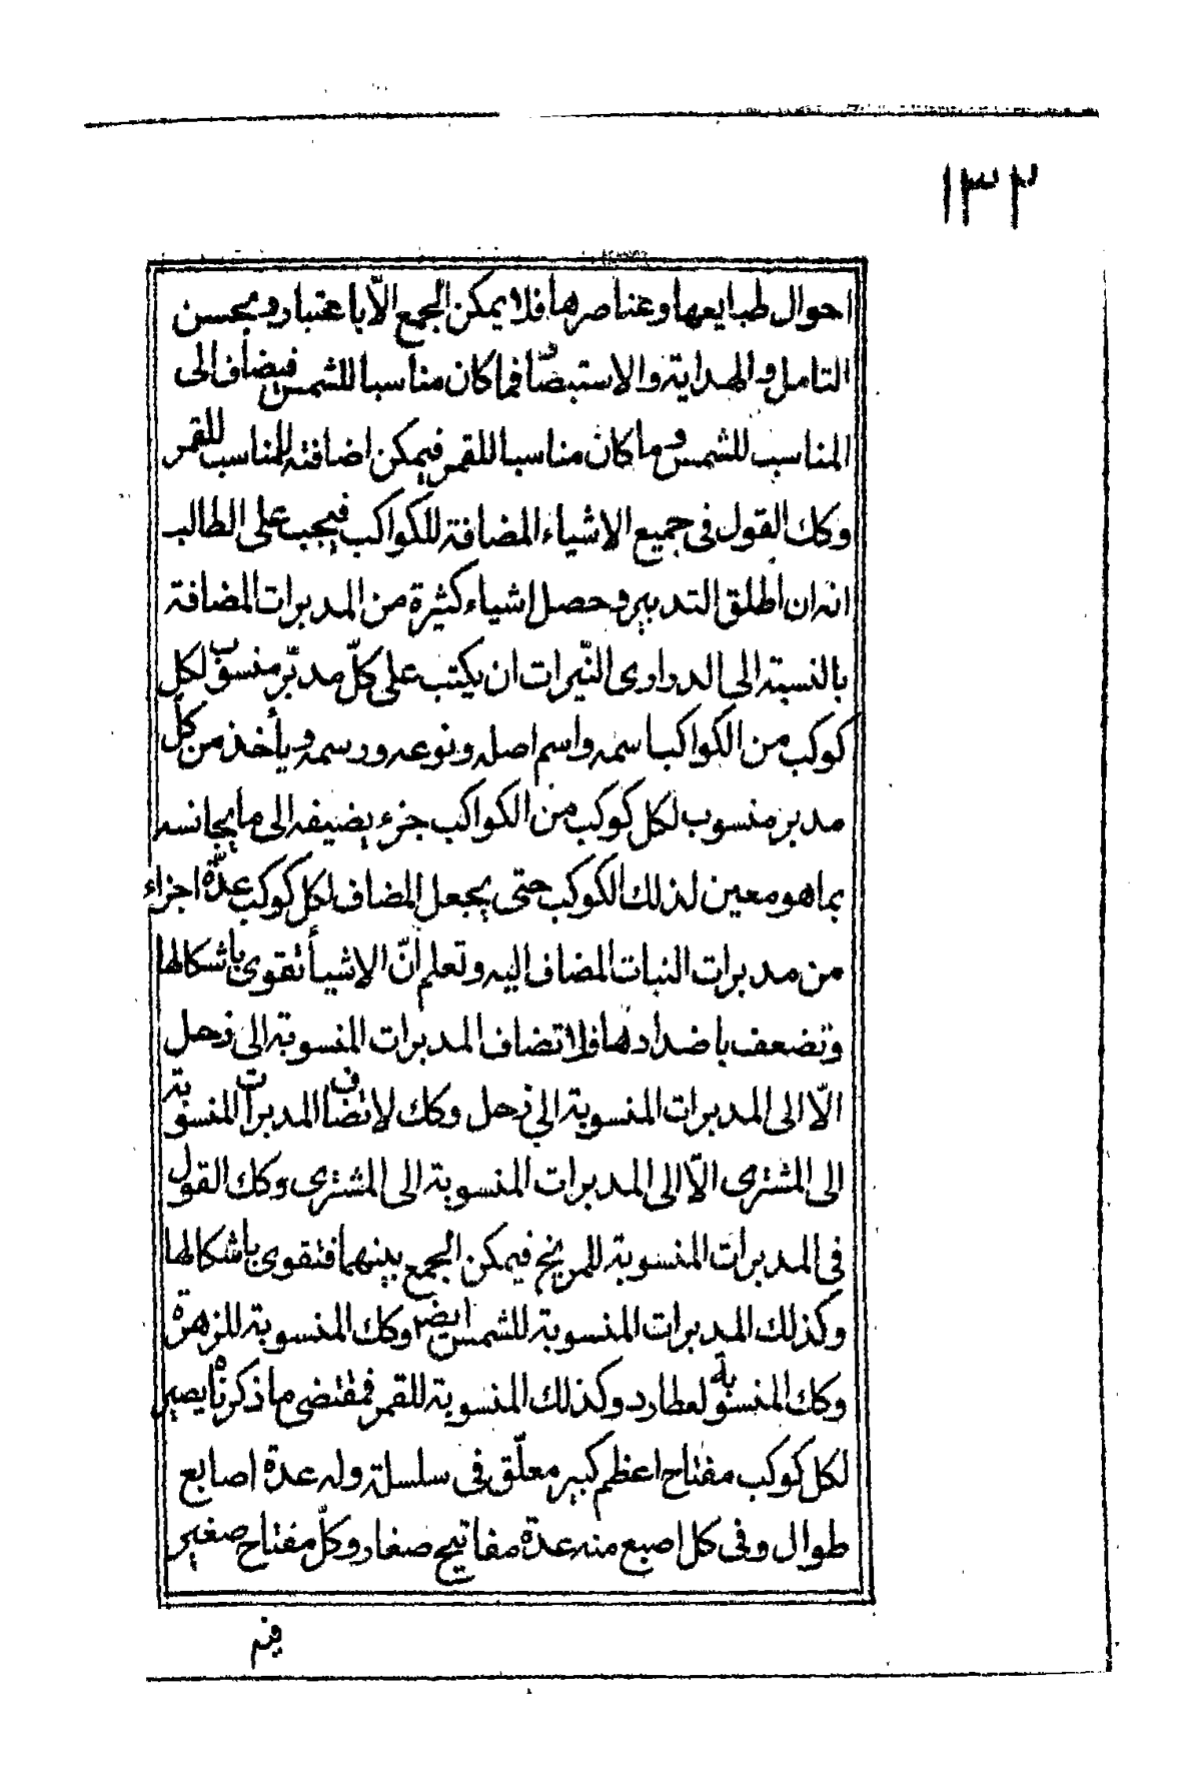 ١٣٢
احوال طبايعها وعناصرها فلا يمكن الجمع الّا باعتبار وبحسن
التامل والهداية والاستبصار فما كان مناسبا للشمس فيضاف الى
المناسب للشمس وما كان مناسبا للقمر فيمكن اضافته للمناسب للقمر
وكك القول فى جميع الاشياء المضافة للكواكب فيجب على الطالب
انه ان اطلق التدبير وحصل اشياء كثيرة من المدبرات المضافة
بالنسبة الى الدرارى النّيرات ان يكتب على كلّ مدبّر منسوب لكل
كوكب من الكواكب اسمه واسم اصله ونوعه ورسمه ويأخذ من كلّ
مدبر منسوب لكل كوكب من الكواكب جزء يضيفه الى ما يجانسه
بما هو معين لذلك الكوكب حتى يجعل المضاف لكل كوكب عدّة اجزاء
من مدبرات النبات المضاف اليه وتعلم أنّ الاشيأ تقوى باشكالها
وتضعف باضدادها فلا تضاف المدبرات المنسوبة الى زحل
الّا الى المدبرات المنسوبة الى زحل وكك لا تضاف المدبرات المنسوبة
الى المشترى الّا الى المدبرات المنسوبة الى المشترى وكك القول
فى المدبرات المنسوبة للمريخ فيمكن الجمع بينهما فتقوى باشكالها
وكذلك المدبرات المنسوبة للشمس ايضر وكك المنسوبة للزهرة
وكك المنسوبة لعطارد وكذلك المنسوبة للقمر فمقتضى ما ذكرناه يصير
لكل كوكب مفتاح اعظم كبير معلّق فى سلسلة وله عدة اصابع
طوال وفى كل اصبع منه عدّة مفاتيح صغار وكلّ مفتاح صغير